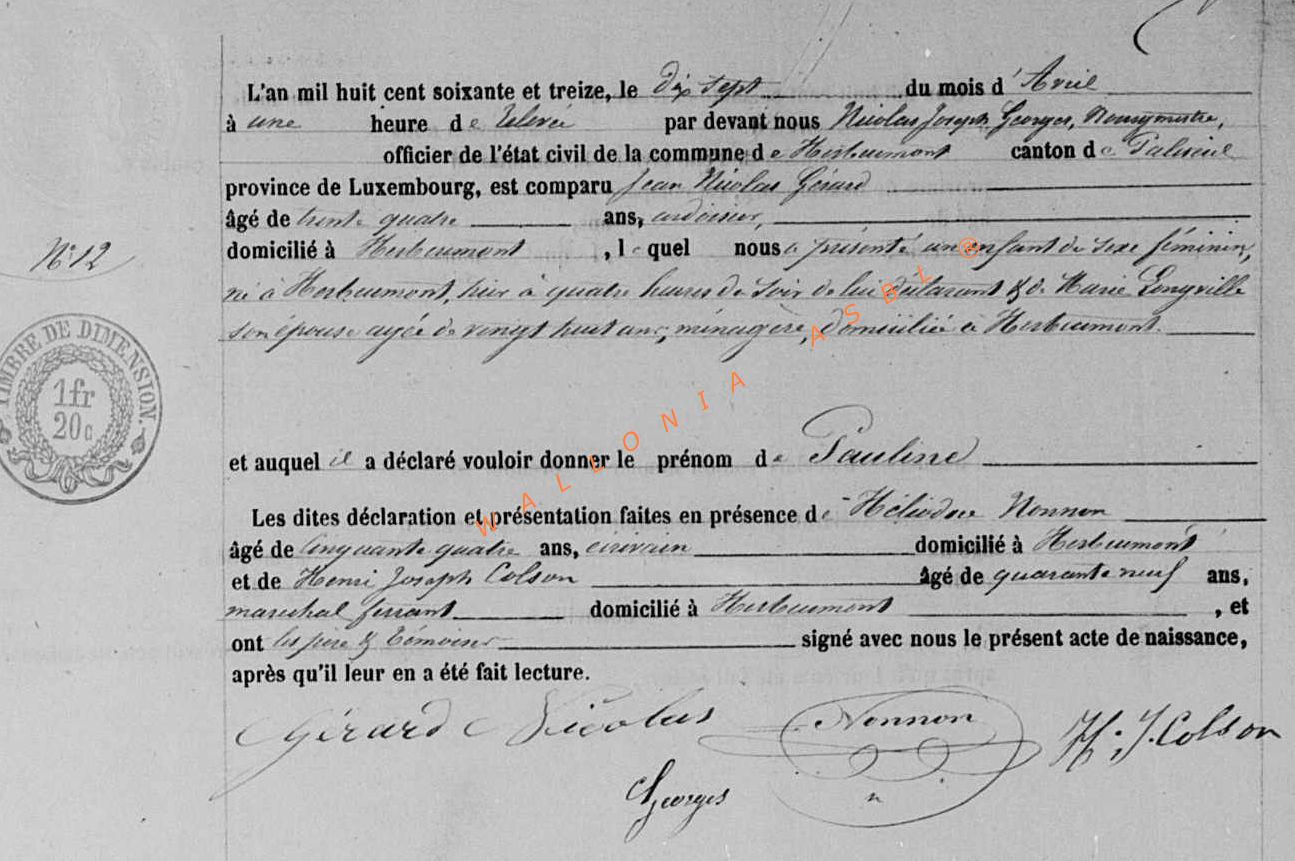 L'an mil huit cent soixante et treize, le dix sept du mois d'Avril
à une heure de relevée par devant nous Nicolas Joseph Georges, Bourgmestre,
officier de l'état civil de la commune de Herbeumont canton de Paliseul
province de Luxembourg, est comparu Jean Nicolas Gérard
âgé de trente quatre ans, ardoisier,
domicilié à Herbeumont, lequel nous a présenté un enfant du sexe féminin,
N° 12
né à Herbeumont, hier à quatre heures du soir de lui déclarant & de Marie Longville
son épouse agée de vingt huit ans, ménagère, domiciliée à Herbeumont.
TIMBRE DE DIMENSION.
1fr
20c
WALLONIA ASBL ®
et auquel il a déclaré vouloir donner le prénom de Pauline
Les dites déclaration et présentation faites en présence de Héliodore Nonnon
âgé de cinquante quatre ans, écrivain domicilié à Herbeumont
et de Henri Joseph Colson âgé de quarante neuf ans,
maréchal ferrant domicilié à Herbeumont, et
ont les père & témoins signé avec nous le présent acte de naissance,
après qu'il leur en a été fait lecture.
Gérard Nicolas Nonnon H. J. Colson
Georges